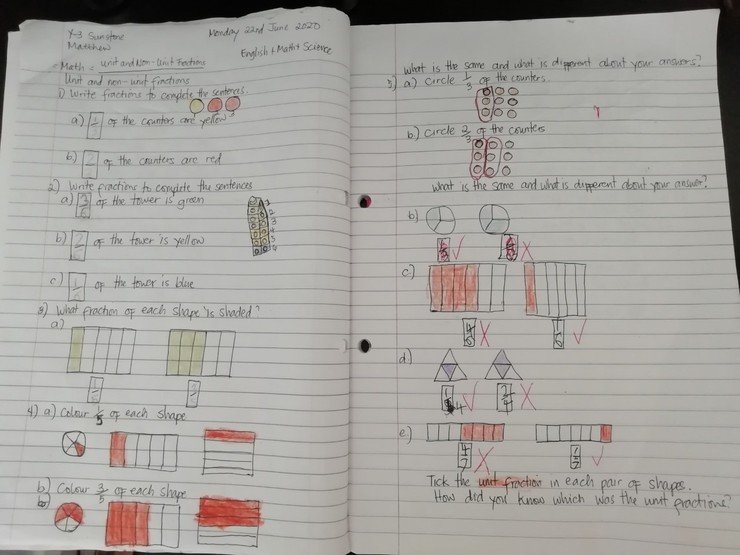 Y-3 Sunstone
Monday 22nd June 2020
Matthew
English + Maths + Science
Math = Unit and Non-Unit Fractions
Unit and non-unit fractions
1) Write fractions to complete the sentences.
a) of the counters are yellow
b) of the counters are red
2) Write fractions to complete the sentences
a) of the tower is green
1
2
3
4
5
6
b) of the tower is yellow
c) of the tower is blue
3) What fraction of each shape is shaded?
a)
4) a) Colour 1/5 of each shape
b) Colour 3/5 of each shape
What is the same and what is different about your answers?
a) Circle 1/3 of the counters.
b) Circle 2/3 of the counters
What is the same and what is different about your answer?
b)
c)
d)
e)
4/7
1/7
Tick the unit fraction in each pair of shapes.
How did you know which was the unit fractions?